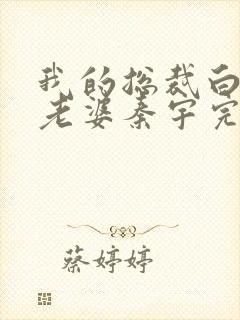 我的总裁白
老婆秦宇完
蔡婷婷